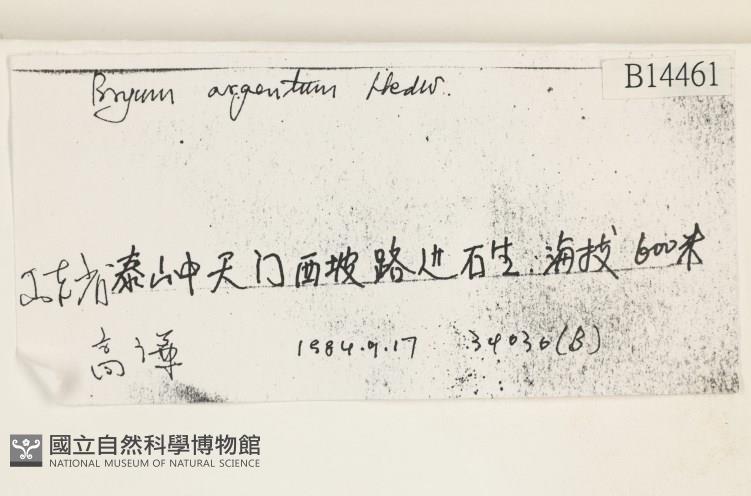 Bryum argentum Hedw.
B14461
山东省泰山中天门西坡路边石生.海拔 600米
高谦
1984.9.17
34036(B)
國立自然科學博物館
NATIONAL MUSEUM OF NATURAL SCIENCE